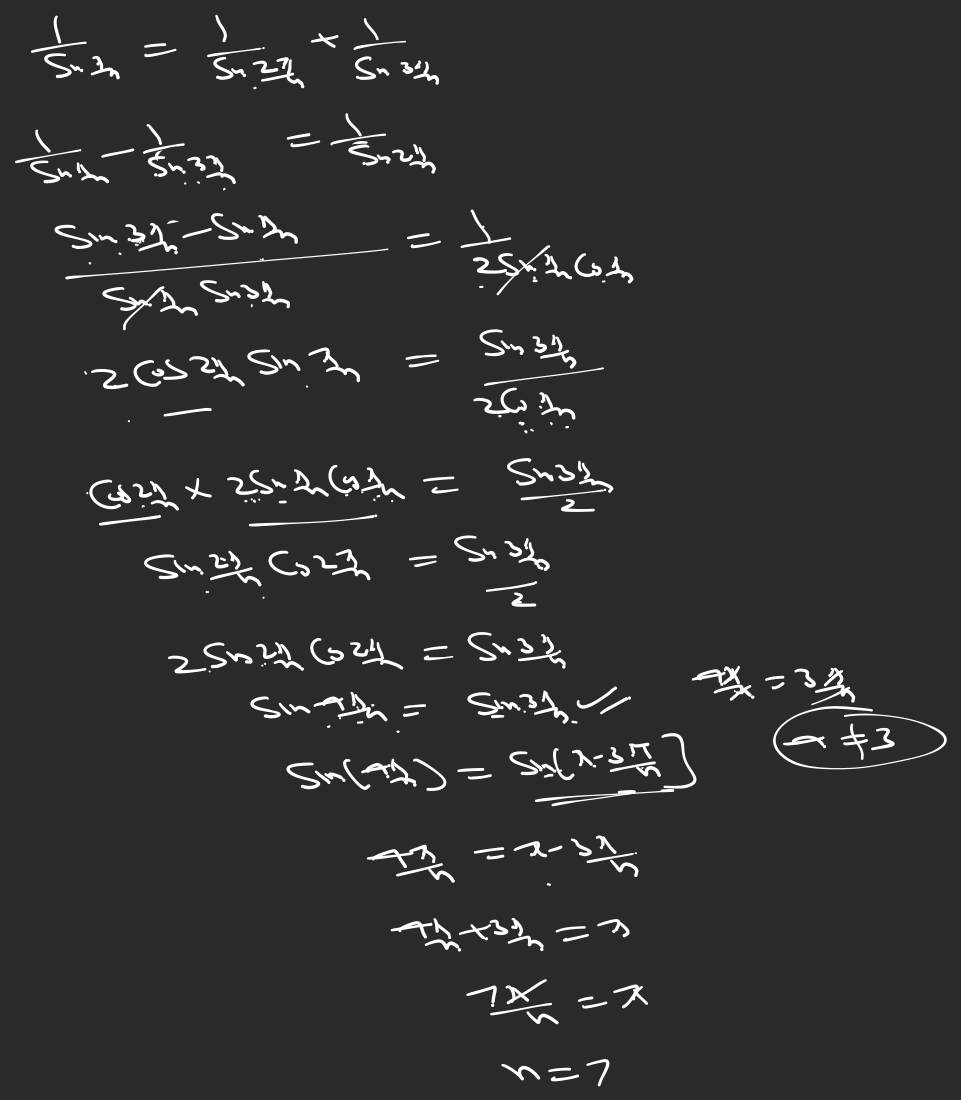 1/Sin π/n = 1/Sin 2π/n + 1/Sin 3π/n
1/Sin π/n − 1/Sin 3π/n = 1/Sin 2π/n
(Sin 3π/n − Sin π/n)/(Sin π/n Sin 3π/n) = 1/(2 Sin π/n Cos π/n)
2 Cos 2π/n Sin π/n = Sin 3π/n / 2 Cos π/n
Cos 2π/n × 2 Sin π/n Cos π/n = Sin 3π/n / 2
Sin 2π/n Cos 2π/n = Sin 3π/n / 2
2 Sin 2π/n Cos 2π/n = Sin 3π/n
Sin 4π/n = Sin 3π/n ✓
4π/n = 3π/n
4 ≠ 3
Sin(4π/n) = Sin(π − 3π/n]
4π/n = π − 3π/n
4π/n + 3π/n = π
7π/n = π
n = 7